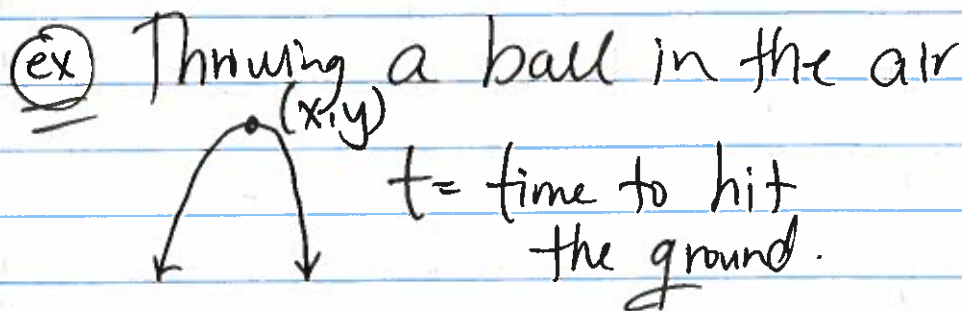 ex Throwing a ball in the air
(x,y)
t = time to hit
the ground.